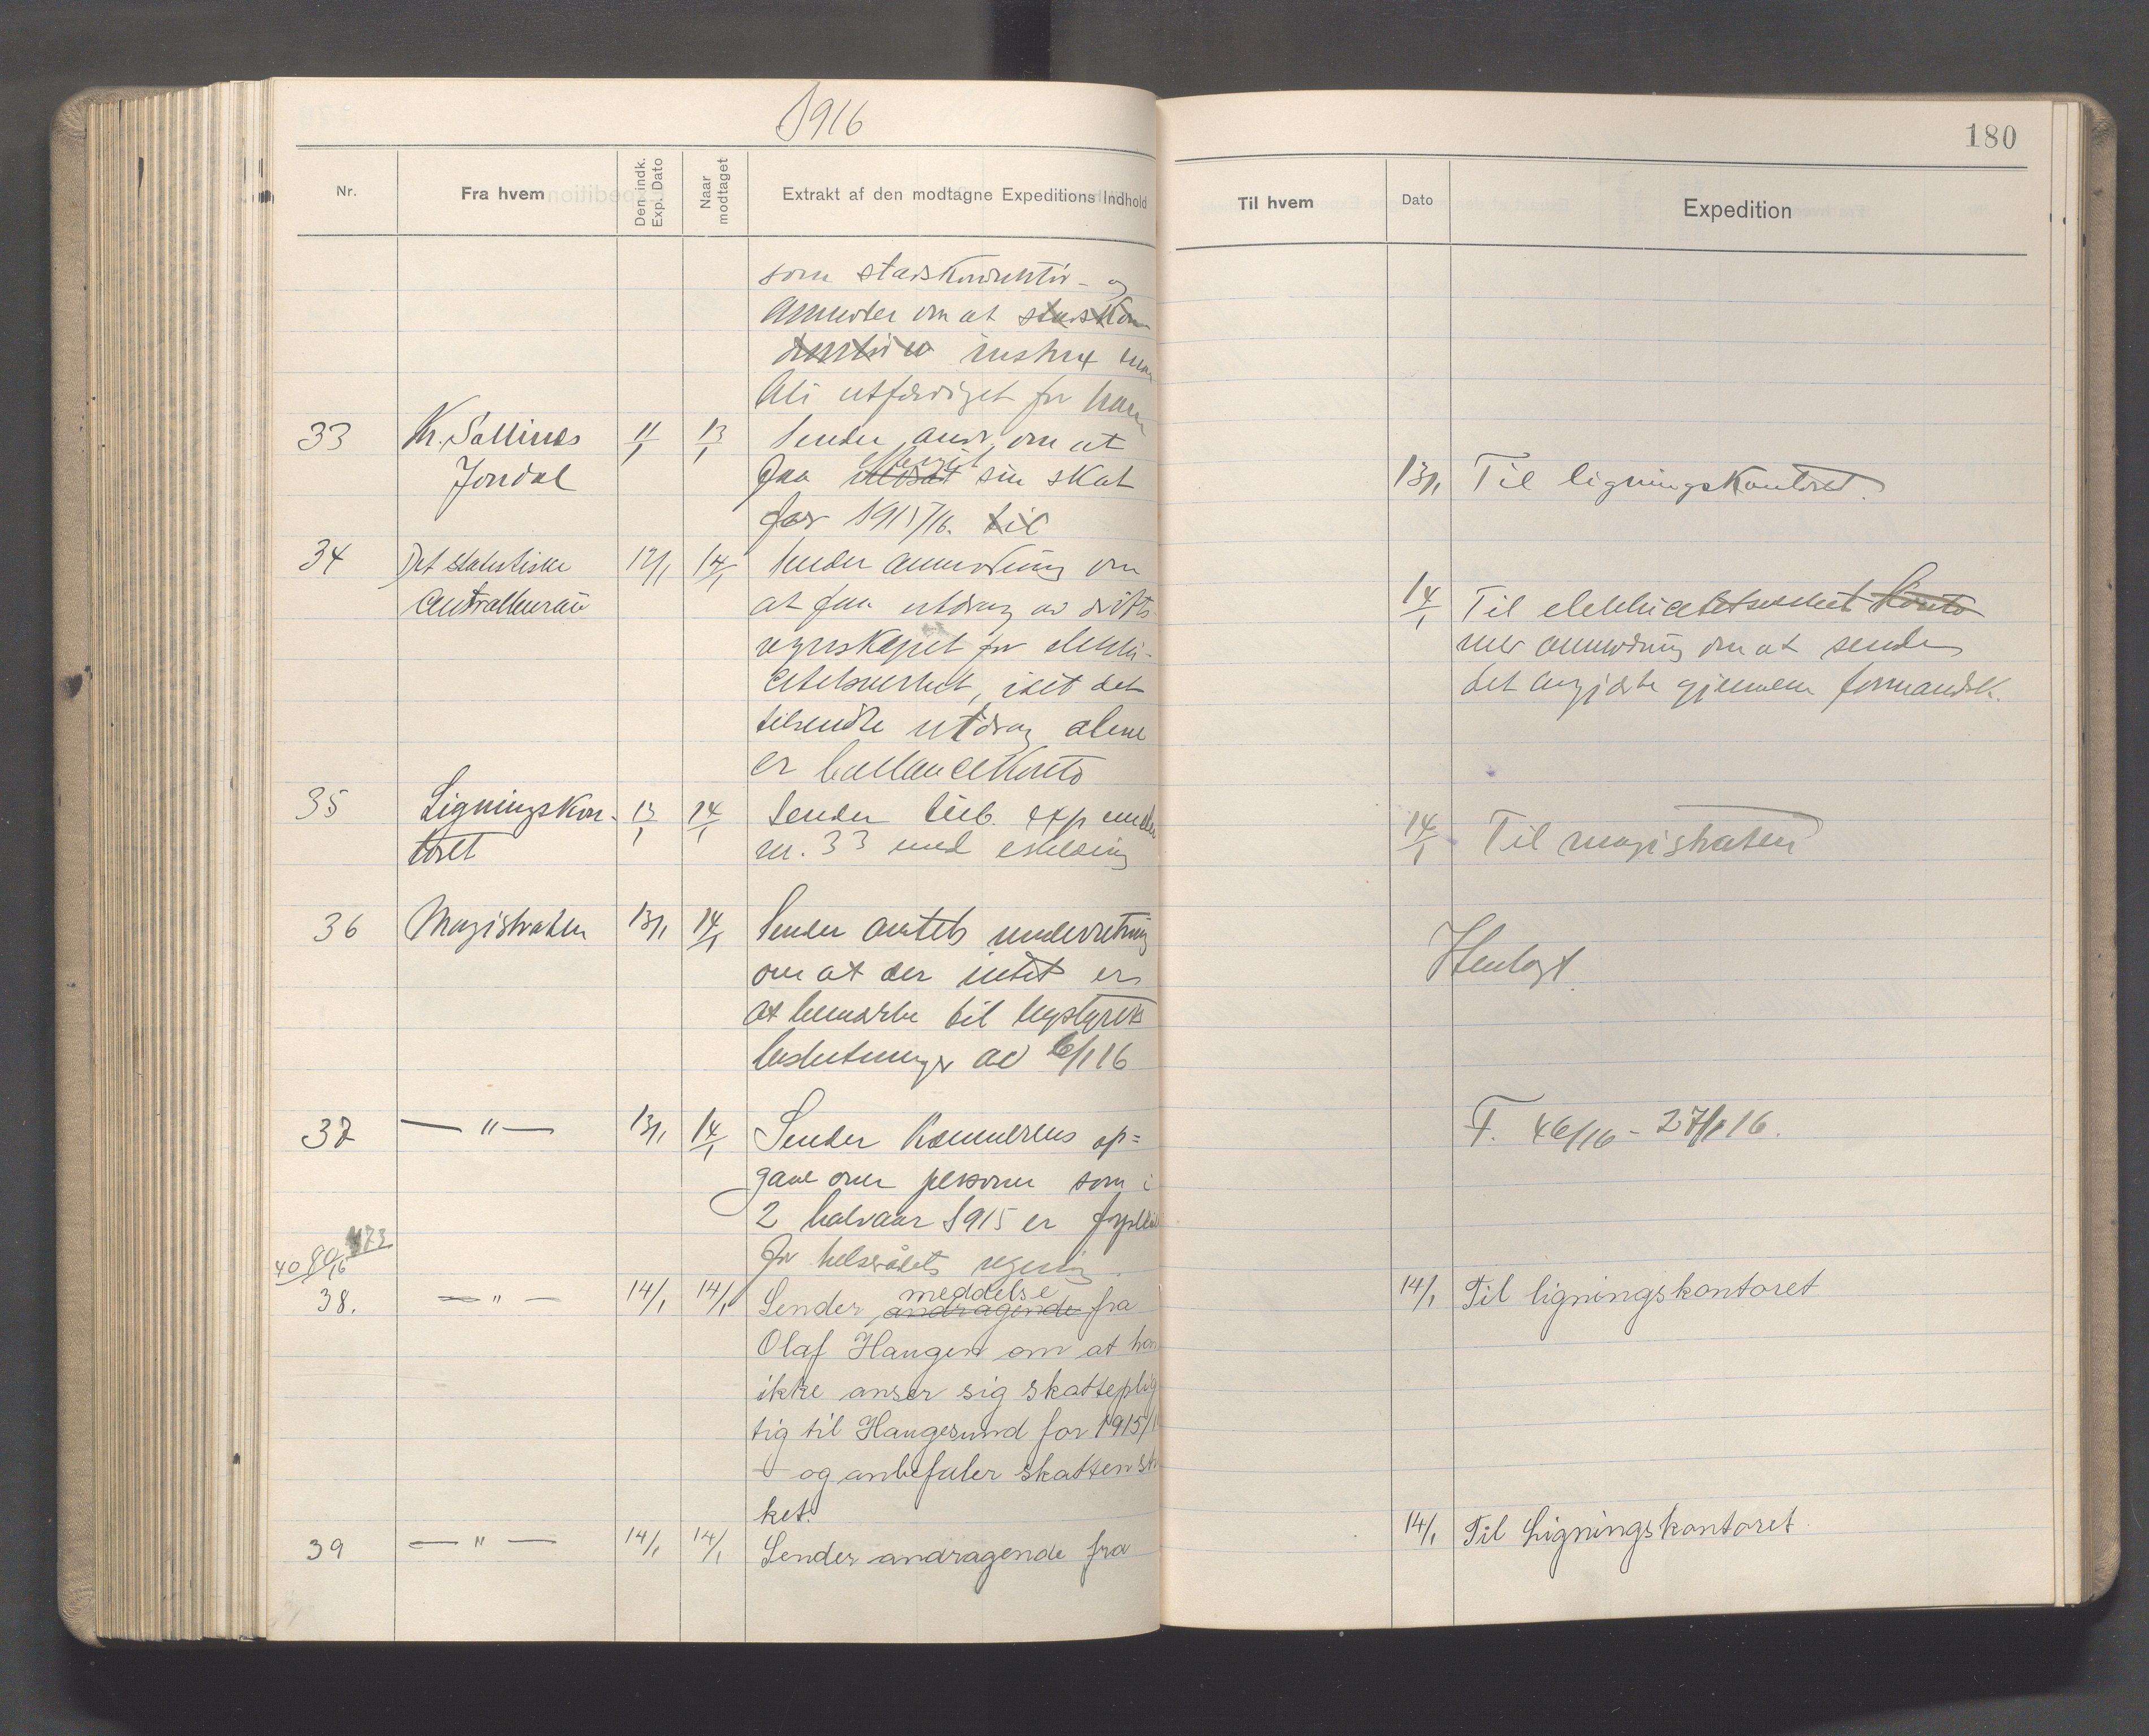 1916
Nr.
Fra hvem
Den indk. Exp. Dato
Naar modtaget
Extrakt af den modtagne Expeditions Indhold
som stadskonduktør - og
anmoder om at
instrux maa
bli utfærdiget for ham
33 Kr. Sollines 11/1 13/1 Sender andr. om at
Jondal faa eftergit sin skat
for 1915/16. til
34 Det statistiske 12/1 14/1 Sender anmodning om
Centralbureau at faa utdrag av drifts-
regnskapet for elektri-
citetsverket, idet det
tilsendte utdrag alene
er ballancekonto
35 Ligningskon- 13/1 14/1 Sender tilb. exp under
toret nr. 33 med erklæring
36 Magistraten 13/1 14/1 Sender amtets underretning
om at der intet er
at bemærke til bystyrets
beslutninger av 6/1 16
37 — " — 13/1 14/1 Sender kæmnerens op=
gave over personer som i
2 halvaar 1915 er forpleiet
for helserådets regning.
473
40 90/16
38. — " — 14/1 14/1 Sender andragende meddelse fra
Olaf Haugen om at han
ikke anser sig skatteplig
tig til Haugesund for 1915/1
— og anbefaler skatten strø
ket.
39 — " — 14/1 14/1 Sender andragende fra
180
Til hvem
Dato
Expedition
13/1 Til ligningskontoret.
14/1 Til elektricitetsverket konto
med anmodning om at sende
det avgjorte gjennem formandsk.
14/1 Til magistraten
Henlagt.
F. 46/16 - 27/1 16.
14/1 Til ligningskontoret
14/1 Til Ligningskontoret